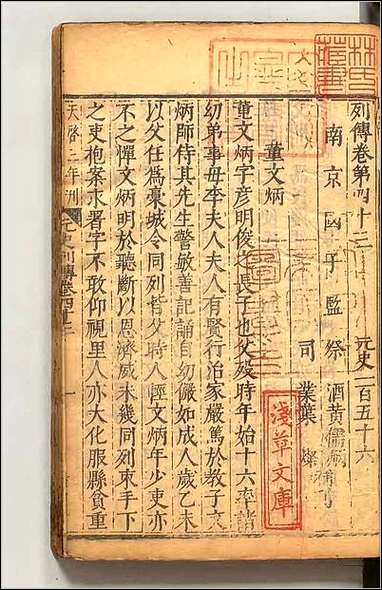 列傳卷第四十三
元史一百五十六
南京國子監祭酒黃儒炳
司業葉燦
董文炳
董文炳字彦明俊之長子也父歿時年始十六率諸
幼弟事母李夫人夫人有賢行治家嚴篤於教子文
炳師侍其先生警敏善記誦自幼儼如成人歲乙未
以父任爲藁城令同列皆父時人輕文炳年少吏亦
不之憚文炳明於聽斷以恩濟威未幾同列束手下
之吏抱案求署字不敢仰視里人亦大化服縣貧重
天啓三年刊
元史列傳卷四十三
一
淺草文庫